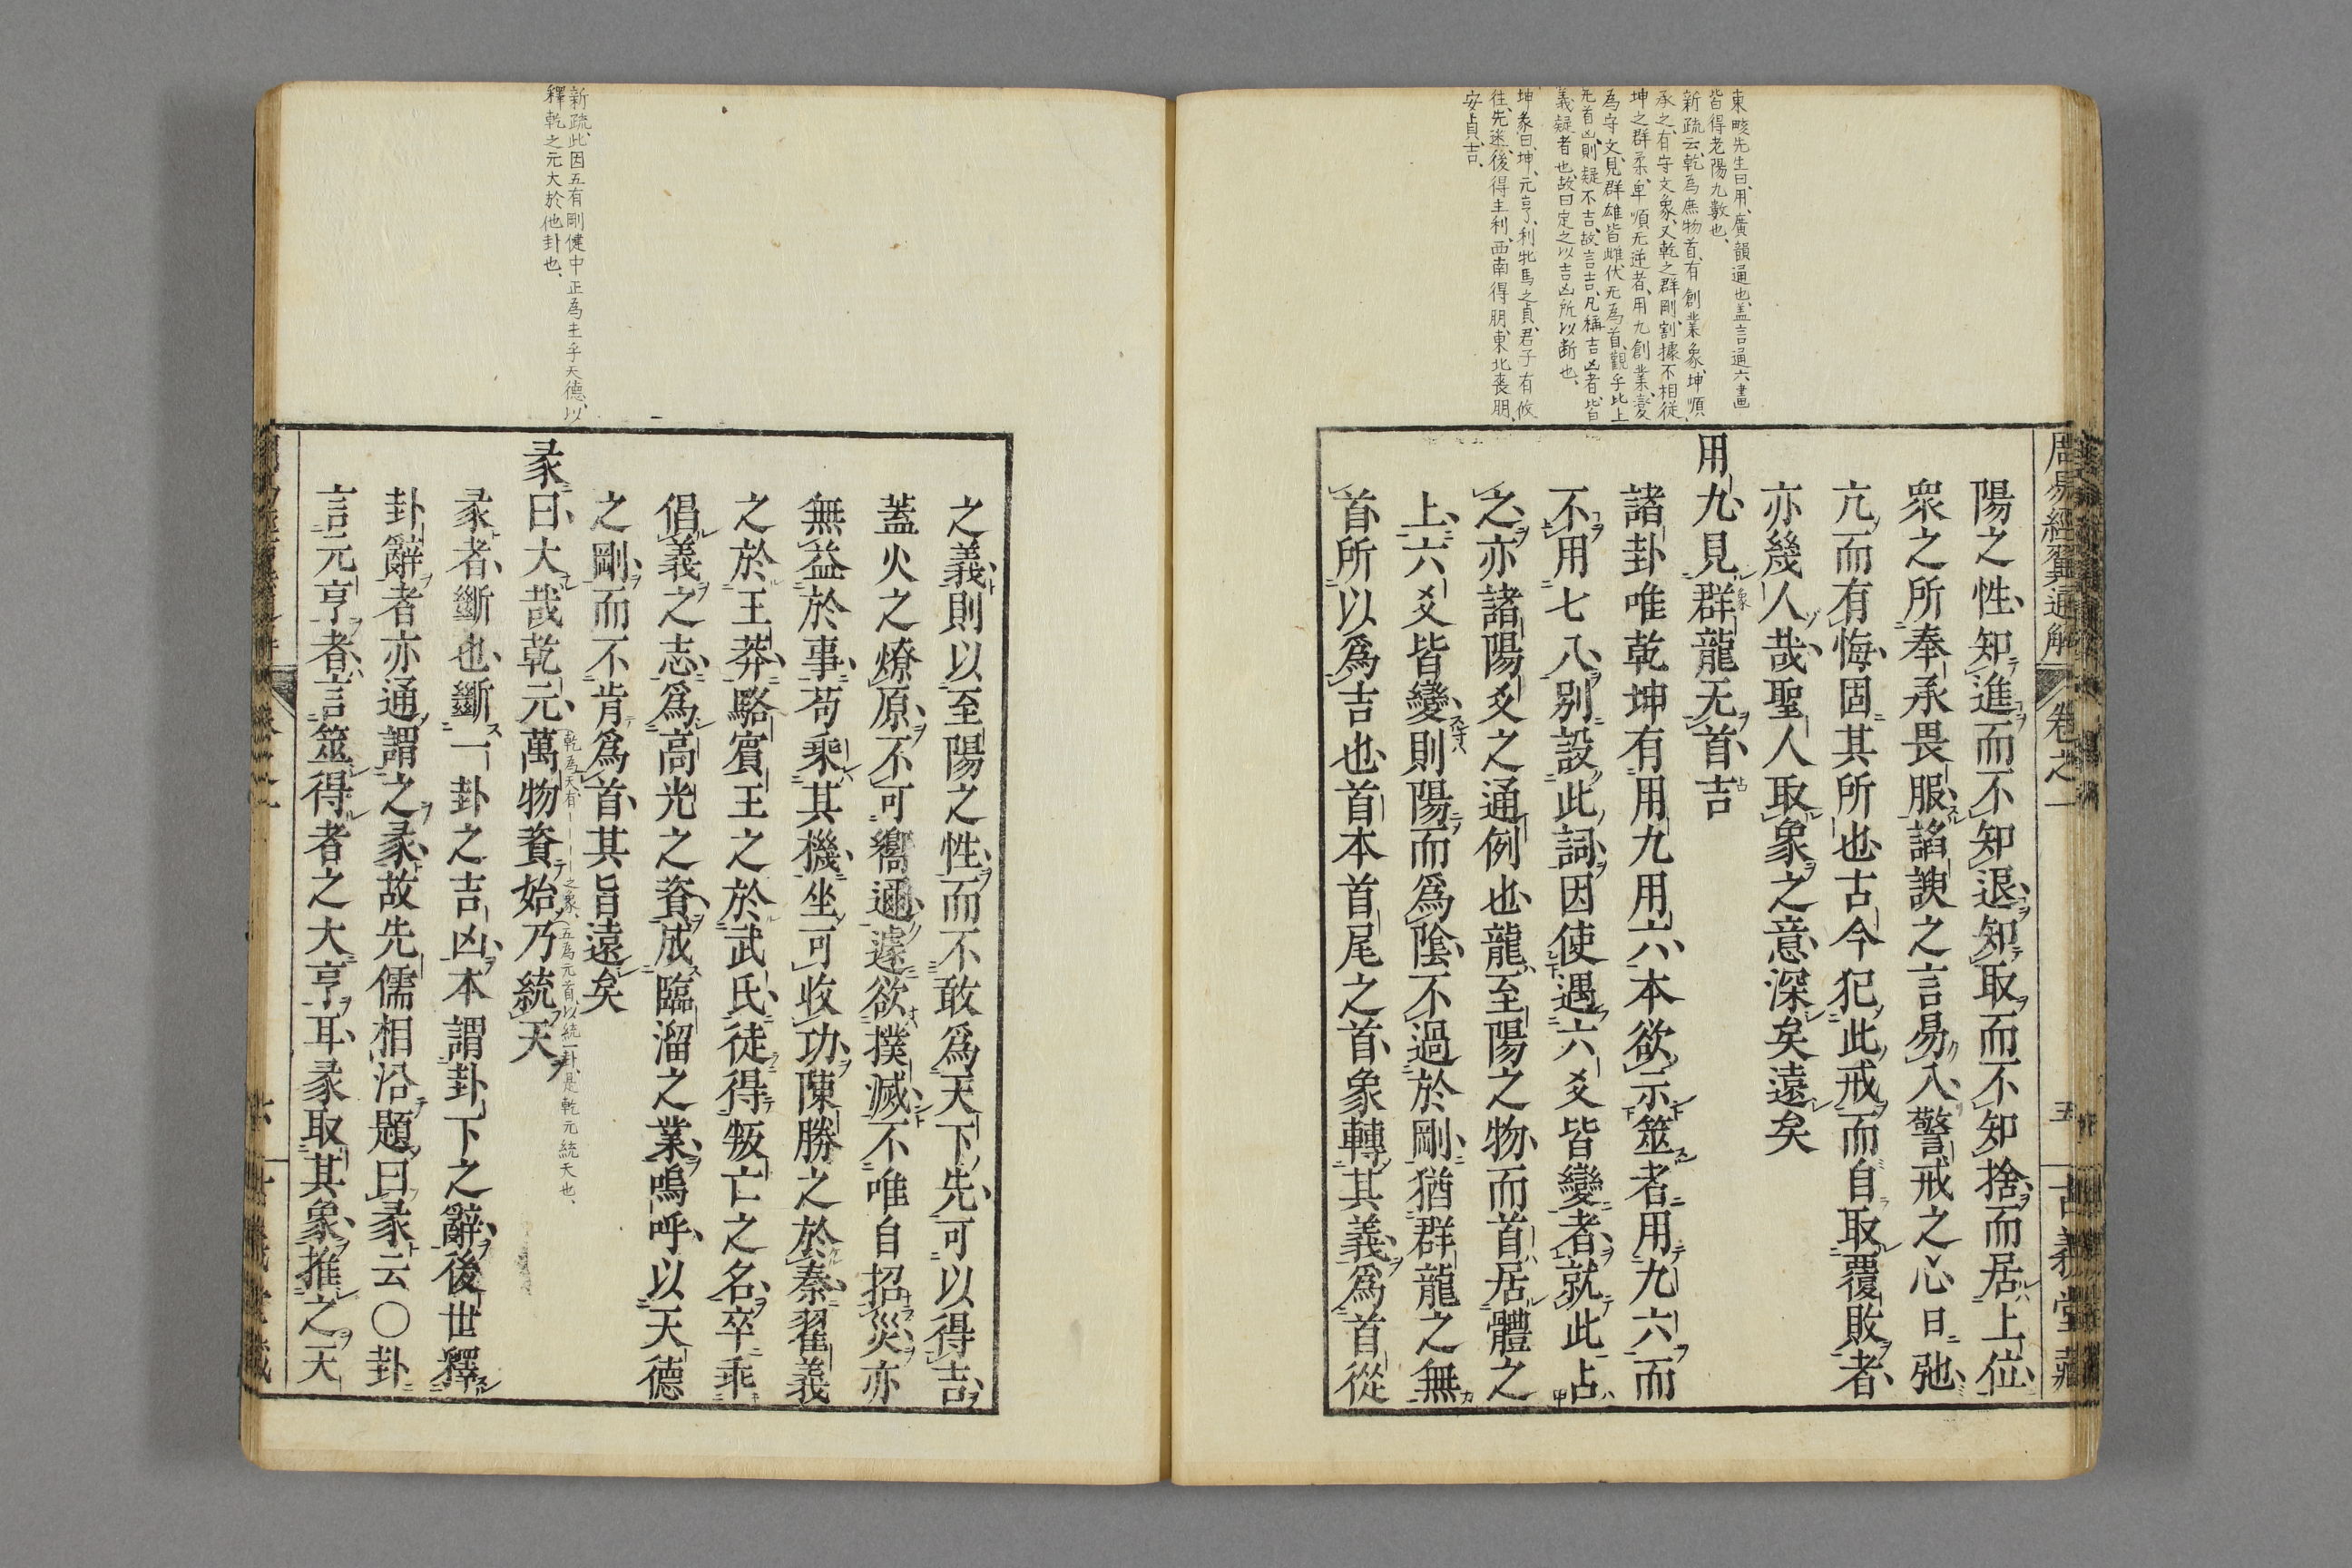 東畡先生曰、用、廣韻通也、盖言通六畫
皆得老陽九數也、
新疏云、乾為庶物首、有創業象、坤順
承之、有守文象、又乾之群剛、割據不相從、
坤之群柔、卑順无逆者、用九創業、変
為守文、見群雄皆雌伏无為首、觀乎比上
无首凶、則疑不吉、故言吉、凡稱吉凶者、皆
義疑者也、故曰定之以吉凶所以断也、
坤彖曰、坤、元亨、利牝馬之貞、君子有攸
往、先迷、後得主利、西南得朋、東北喪朋、
安貞、吉、
周易經翼通解 卷之一 五 古義堂藏
陽之性、知進而不知退、知取而不知捨、而居上位、
衆之所奉承畏服、諂諛之言易入、警戒之心日弛、
亢而有悔、固其所也、古今犯此戒而自取覆敗者、
亦幾人哉、聖人取象之意、深矣遠矣
用九、見群龍无首、吉
諸卦唯乾坤有用九用六、本欲示筮者用九六而
不用七八、別設此詞、因使遇六爻皆變者、就此占
之、亦諸陽爻之通例也、龍至陽之物、而首居體之
上、六爻皆變、則陽而爲陰、不過於剛、猶群龍之無
首、所以爲吉也、首本首尾之首、象轉其義、爲首從
之義、則以至陽之性、而不敢爲天下先、可以得吉、
蓋火之燎原、不可嚮邇、遽欲撲滅、不唯自招災、亦
無益於事、苟乘其機、坐可收功、陳勝之於秦、翟義
之於王莽、駱賓王之於武氏、徒得叛亡之名、卒乖
倡義之志、爲高光之資、成臨溜之業、嗚呼、以天德
之剛、而不肯爲首、其旨遠矣
彖曰、大哉乾元、萬物資始、乃統天
彖者、斷也、斷一卦之吉凶、本謂卦下之辭、後世釋
卦辭者、亦通謂之彖、故先儒相沿題曰彖云○卦
言元亨者、言筮得者之大亨耳、彖取其象、推之天
新疏、此因五有剛健中正為主乎天德、以
釋乾之元大於他卦也、
乾為天、有｜｜｜之象、五為元首、以統一卦、是乾元統天也、